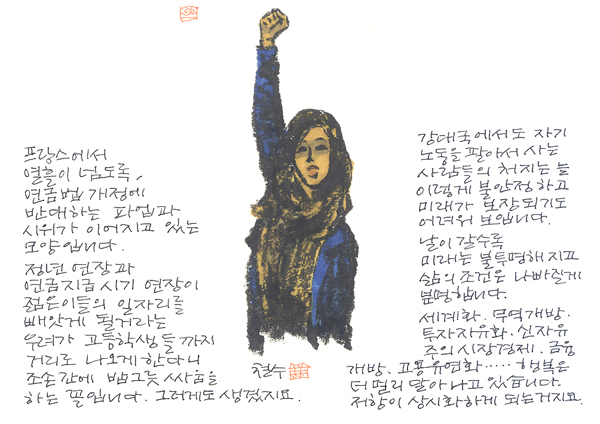 프랑스에서
열흘이 넘도록,
연금법 개정에
반대하는 파업과
시위가 이어지고 있는
모양입니다.
정년 연장과
연금지급시기 연장이
젊은이들의 일자리를
빼앗게 될거라는
우려가 고등학생들까지
거리로 나오게 한다니
조손간에 밥그릇 싸움을
하는 꼴입니다. 그러게도 생겼지요.
철수
강대국에서도 자기
노동을 팔아서 사는
사람들의 처지는 늘
이렇게 불안정하고
미래가 보장되기도
어려워 보입니다.
날이 갈수록
미래는 불투명해지고
삶의 조건은 나빠질게
분명합니다.
세계화. 무역개방.
투자자유화. 신자유
주의 시장경제. 금융
개방. 고용유연화..... 행복은
더 멀리 달아나고 있습니다.
저항이 상시화하게 되는거지요.